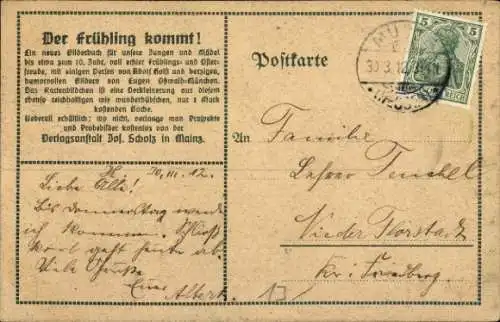 Der Frühling kommt!
Ein neues Bilderbuch für unsere Jungen und Mädel
bis etwa zum 10. Jahr, voll echter Frühlings- und Oster-
freude, mit einigen Versen von Adolf Holst und herzigen,
humorvollen Bildern von Eugen Oßwald-München.
Das Kartenbildchen ist eine Verkleinerung aus diesem
ebenso reichhaltigen wie wunderhübschen, nur 1 Mark
kostenden Buche.
Ueberall erhältlich; wo nicht, verlange man Prospekte
und Probebilder kostenlos von der
Verlagsanstalt Jos. Scholz in Mainz.
Postkarte
5 5
REICH
30.3.12
An Familie
Lehrer
Nieder Florstadt
Kr. Friedberg.
30.III.12.
Liebe Alle!
Bis Donnerstag werde
ich kommen.
geht heute ab.
Viele Grüße
Euer Albert
13